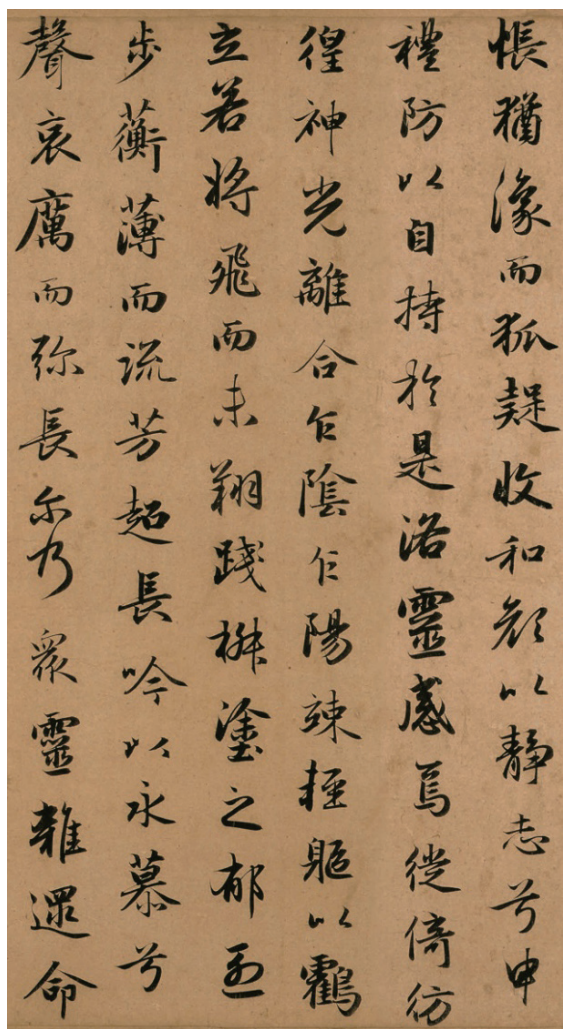 悵猶豫而狐疑收和顏以靜志兮申
禮防以自持於是洛靈感焉徙倚彷
徨神光離合乍陰乍陽竦輕軀以鶴
立若將飛而未翔踐椒塗之郁烈
步蘅薄而流芳超長吟以永慕兮
聲哀厲而弥長尔乃眾靈雜遝命